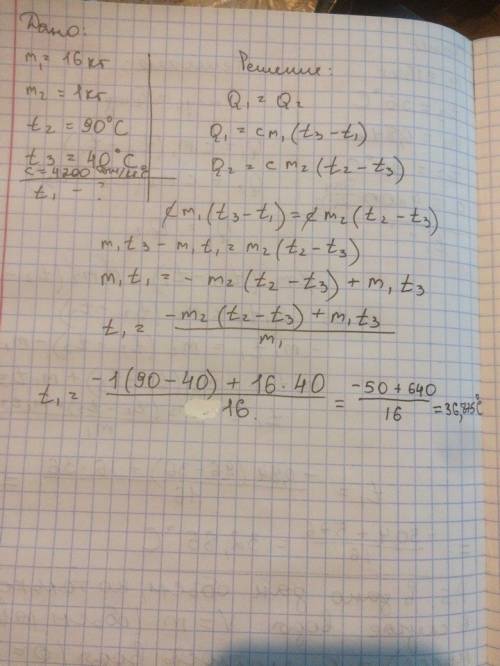 Дано:
m₁ = 16 кг
m₂ = 1 кг
t₂ = 90°C
t₃ = 40°C
c = 4200
t₁ - ?
Решение:
Q₁ = Q₂
Q₁ = c m₁ (t₃ - t₁)
Q₂ = c m₂ (t₂ - t₃)
c m₁ (t₃ - t₁) = c m₂ (t₂ - t₃)
m₁ t₃ - m₁ t₁ = m₂ (t₂ - t₃)
m₁ t₁ = - m₂ (t₂ - t₃) + m₁ t₃
t₁ = -m₂ (t₂ - t₃) + m₁ t₃ / m₁
t₁ = -1 (90 - 40) + 16 · 40 / 16 = -50 + 640 / 16 = 36,875°C